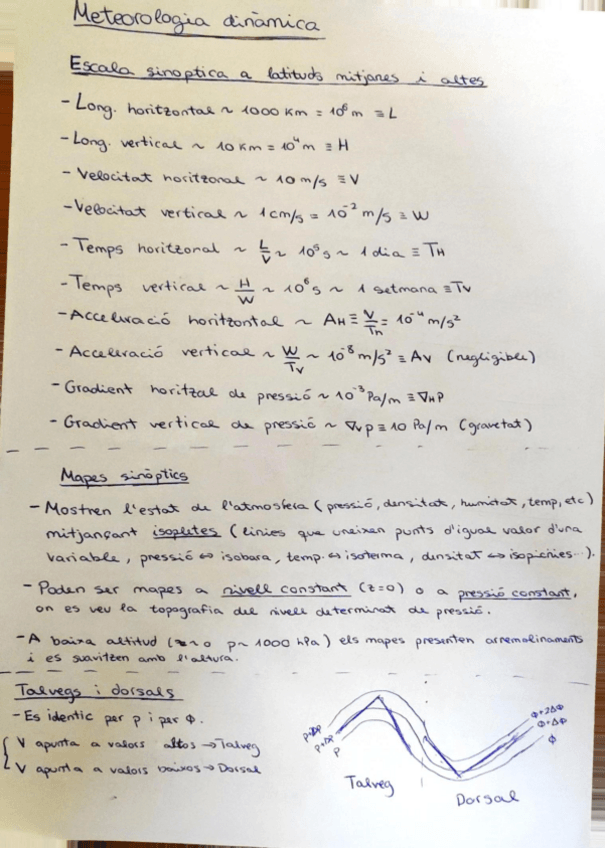 Meteorologia dinàmica
Escala sinoptica a latituds mitjanes i altes
- Long. horitzontal ~ 1000 Km = 10⁶ m ≡ L
- Long. vertical ~ 10 Km = 10⁴ m ≡ H
- Velocitat horitzonal ~ 10 m/s ≡ V
- Velocitat vertical ~ 1 cm/s = 10⁻² m/s ≡ W
- Temps horitzonal ~ L/V ~ 10⁵ s ~ 1 dia ≡ T_H
- Temps vertical ~ H/W ~ 10⁶ s ~ 1 setmana ≡ T_V
- Acceleració horitzontal ~ A_H ≡ V/T_H = 10⁻⁴ m/s²
- Acceleració vertical ~ W/T_V ~ 10⁻⁸ m/s² ≡ A_V (negligible)
- Gradient horitzal de pressió ~ 10⁻³ Pa/m ≡ ∇_H P
- Gradient vertical de pressió ~ ∇_V p ≡ 10 Pa/m (gravetat)
Mapes sinòptics
- Mostren l'estat de l'atmosfera (pressió, densitat, humitat, temp, etc)
mitjançant isopletes (línies que uneixen punts d'igual valor d'una
variable, pressió ⇔ isobara, temp. ⇔ isoterma, densitat ⇔ isopicnies...).
- Poden ser mapes a nivell constant (z=0) o a pressió constant,
on es veu la topografia del nivell determinat de pressió.
- A baixa altitud (z~0 p~1000 hPa) els mapes presenten arremolinaments
i es suavitzen amb l'altura.
Talvegs i dorsals
- Es identic per p i per Φ.
V apunta a valors altos → Talveg
V apunta a valors baixos → Dorsal
P+2ΔP
P+ΔP
P
Φ+2ΔΦ
Φ+ΔΦ
Φ
Talveg
Dorsal